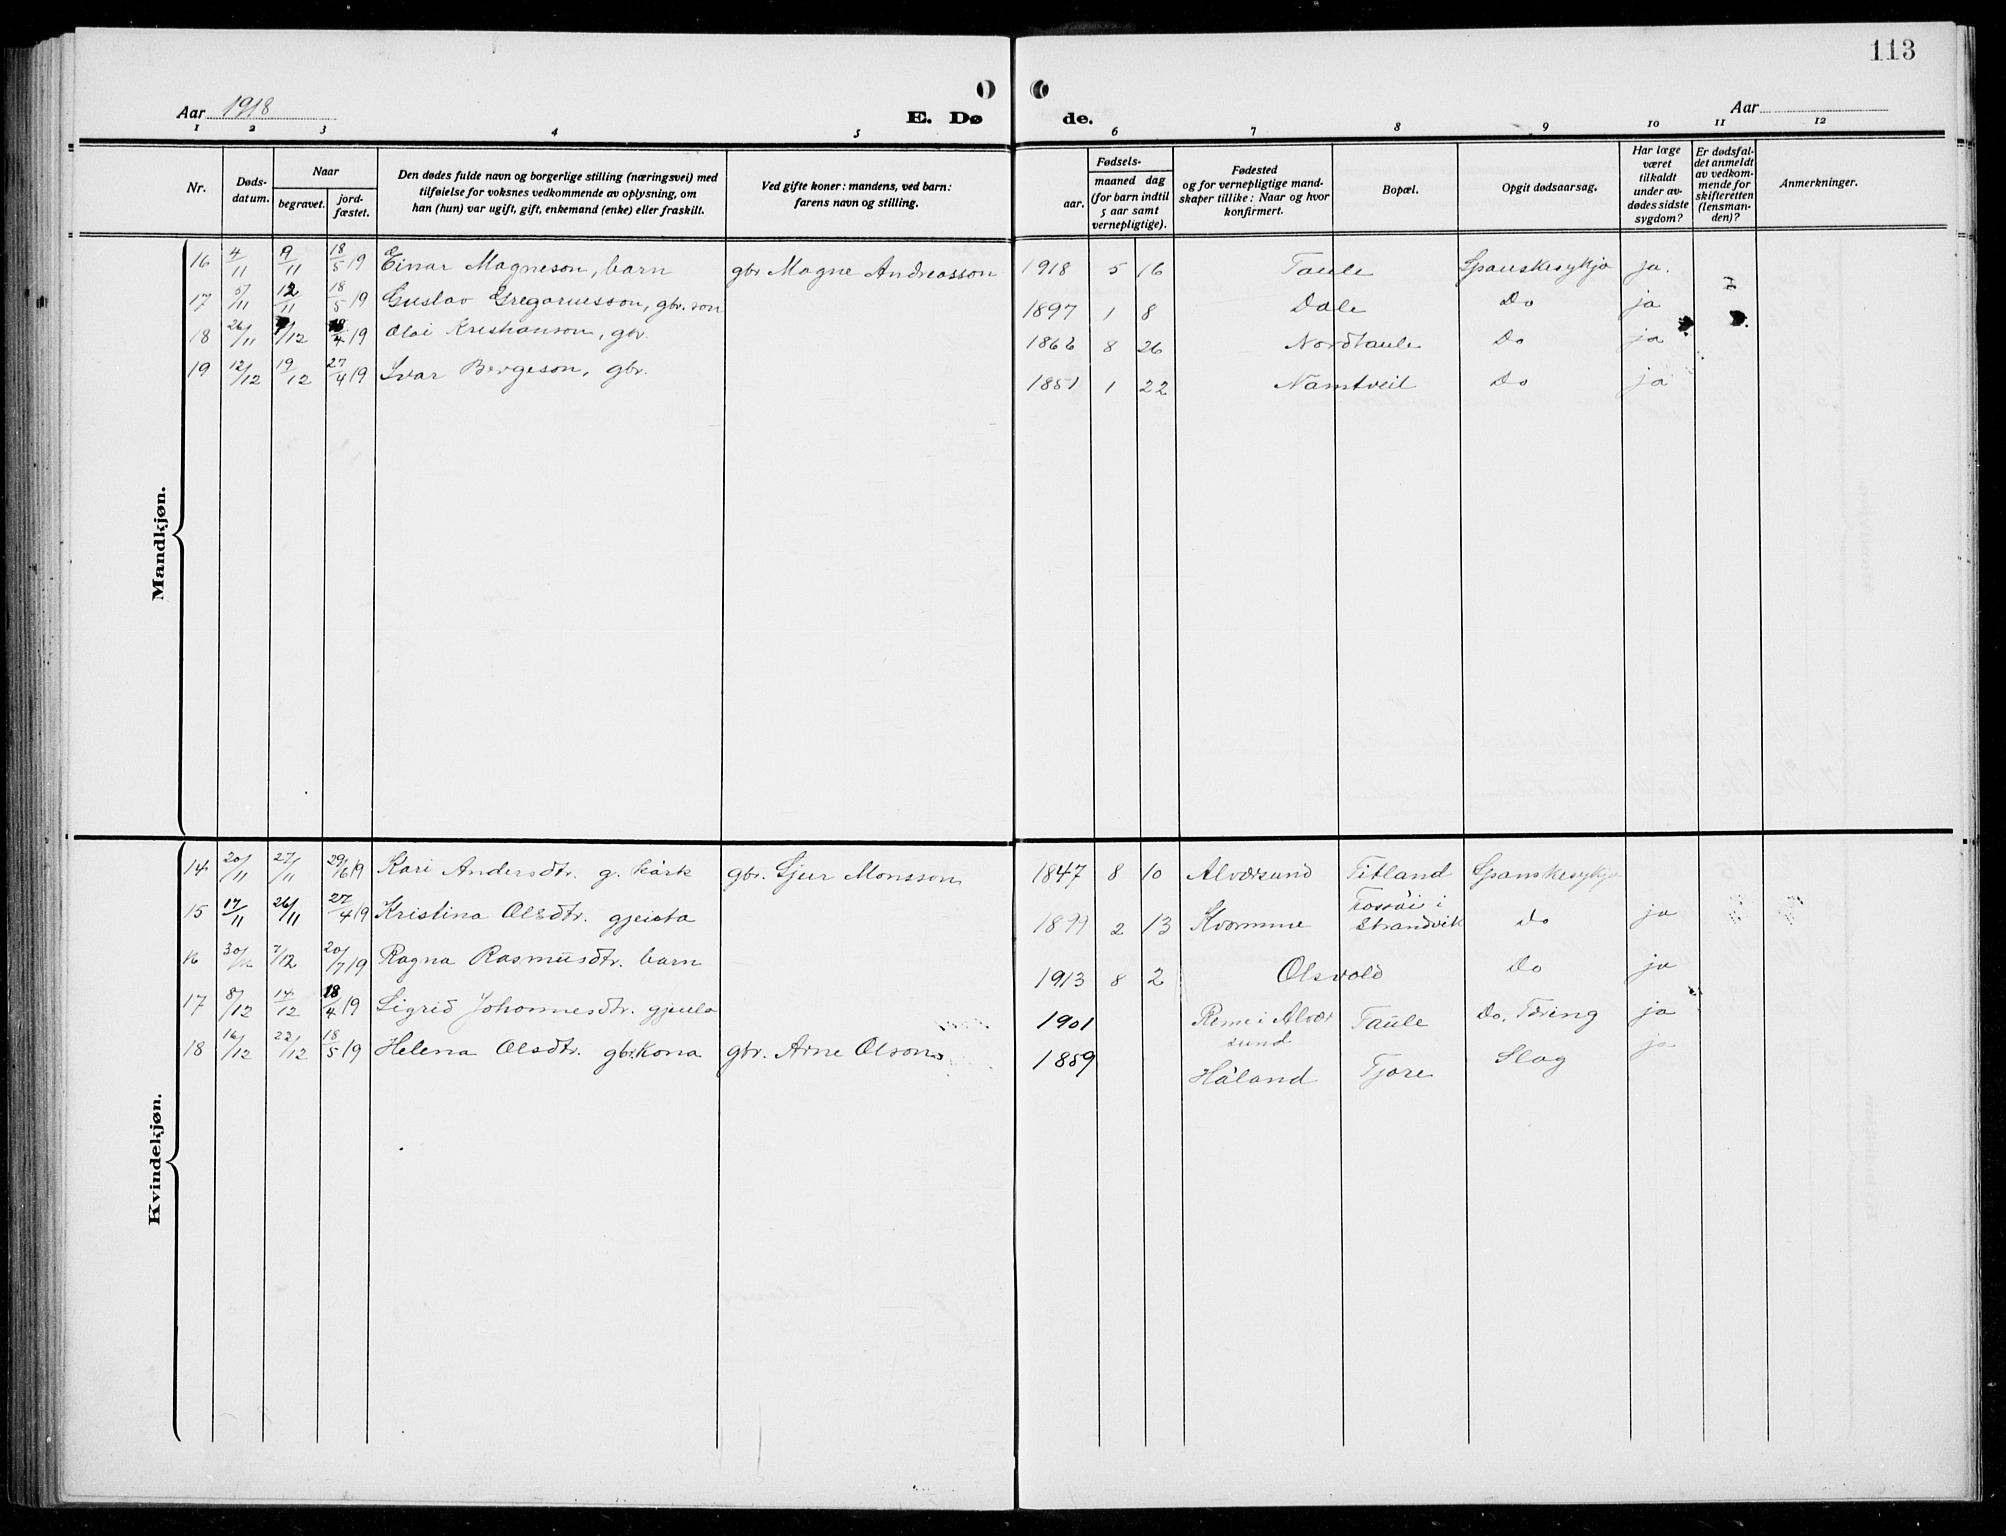 113
Aar 1918
E. Dø
de.
Aar
1 2 3 4 5 6 7 8 9 10 11 12
Nr.
Døds-
datum.
Naar
begravet.
jord-
fæstet.
Den dødes fulde navn og borgerlige stilling (næringsvei) med
tilføielse for voksnes vedkommende av oplysning, om
han (hun) var ugift, gift, enkemand (enke) eller fraskilt.
Ved gifte koner: mandens, ved barn:
farens navn og stilling.
Fødsels-
aar.
maaned dag
(for barn indtil
5 aar samt
vernepligtige).
Fødested
og for vernepligtige mand-
skaper tillike: Naar og hvor
konfirmert.
Bopæl.
Opgit dødsaarsag.
Har læge
været
tilkaldt
under av-
dødes sidste
sygdom?
Er dødsfal-
det anmeldt
av vedkom-
mende for
skifteretten
(lensman-
den)?
Anmerkninger.
Mandkjøn.
16 4/11 9/11 18/5 19 Einar Magneson, barn gbr Magne Andreasson 1918 5 16 Taule Spanskesykja ja.
17 5/11 12/11 18/5 19 Gustav Gregoriusson, gbr. son 1897 1 8 Dale Do ja
18 26/11 /12 18/4 19 Olai Kristianson, gbr. 1862 8 26 Nordtaule Do ja
19 12/12 19/12 27/4 19 Ivar Bergeson, gbr. 1851 1 22 Namtveit Do ja
Kvindekjøn.
14 20/11 27/11 29/6 19 Kari Andersdtr. g. kårk gbr. Sjur Monsson 1847 8 10 Alværsund Titland Spanskesykja
15 17/11 26/11 27/4 19 Kristina Olsdtr. gjenta 1899 2 13 Kvamme Fossøi i
Strandvik do ja
16 30/11 7/12 20/7 19 Ragna Rasmusdtr. barn 1913 8 2 Olsvold Do ja
17 8/12 14/12 18/4 19 Sigrid Johannesdtr. gjenta 1901 Reme i Alvær
sund Taule Do. Tæring ja
18 16/12 22/12 18/5 19 Helena Olsdtr. gbr.kona gbr. Arne Olson 1859 Håland Tjore Slag ja